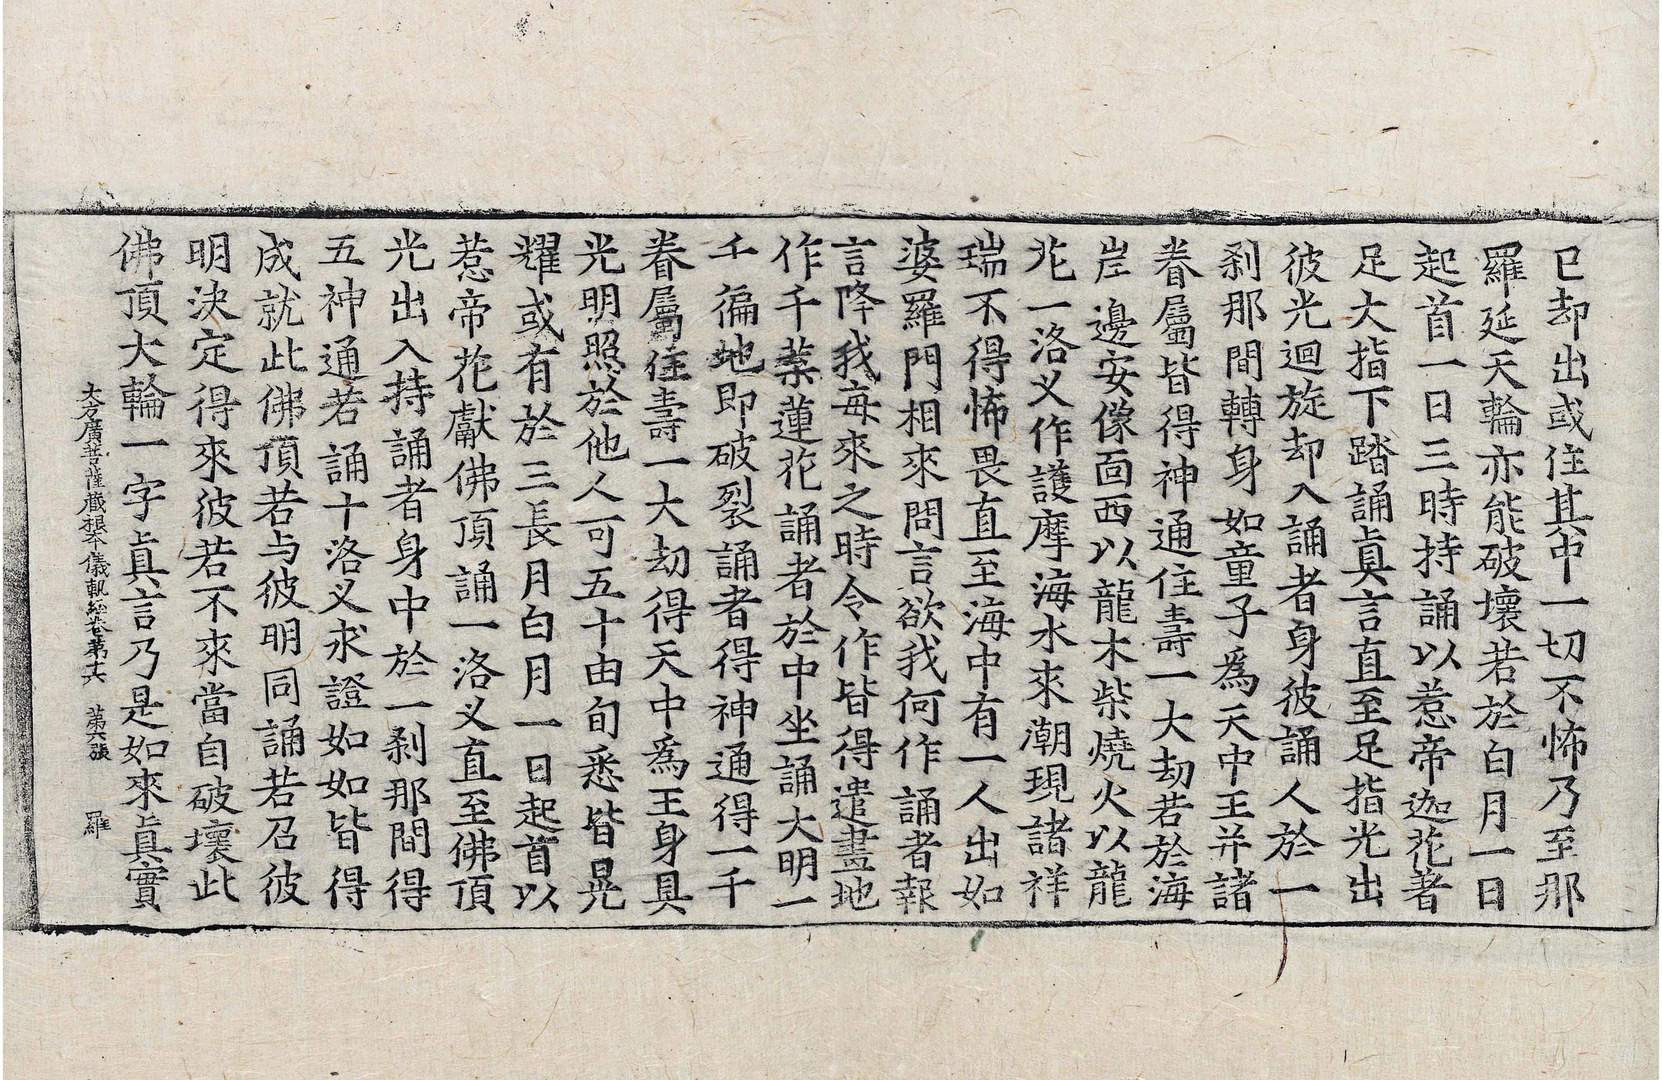 已却出或住其中一切不怖乃至那
羅延天輪亦能破壞若於白月一日
起首一日三時持誦以惹帝迦花著
足大指下踏誦眞言直至足指光出
彼光迴旋却入誦者身彼誦人於一
刹那間轉身如童子爲天中王并諸
眷屬皆得神通住壽一大劫若於海
岸邊安像面西以龍木柴燒火以龍
花一洛叉作護摩海水來潮現諸祥
瑞不得怖畏直至海中有一人出如
婆羅門相來問言欲我何作誦者報
言降我每來之時令作皆得遣畫地
作千葉蓮花誦者於中坐誦大明一
千徧地即破裂誦者得神通得一千
眷屬住壽一大劫得天中爲王身具
光明照於他人可五十由旬悉皆晃
耀或有於三長月白月一日起首以
惹帝花獻佛頂誦一洛叉直至佛頂
光出入持誦者身中於一刹那間得
五神通若誦十洛叉求證如如皆得
成就此佛頂若与彼明同誦若召彼
明決定得來彼若不來當自破壞此
佛頂大輪一字眞言乃是如來眞實
大方廣菩薩藏根本儀軌經卷第十六 第六張 羅